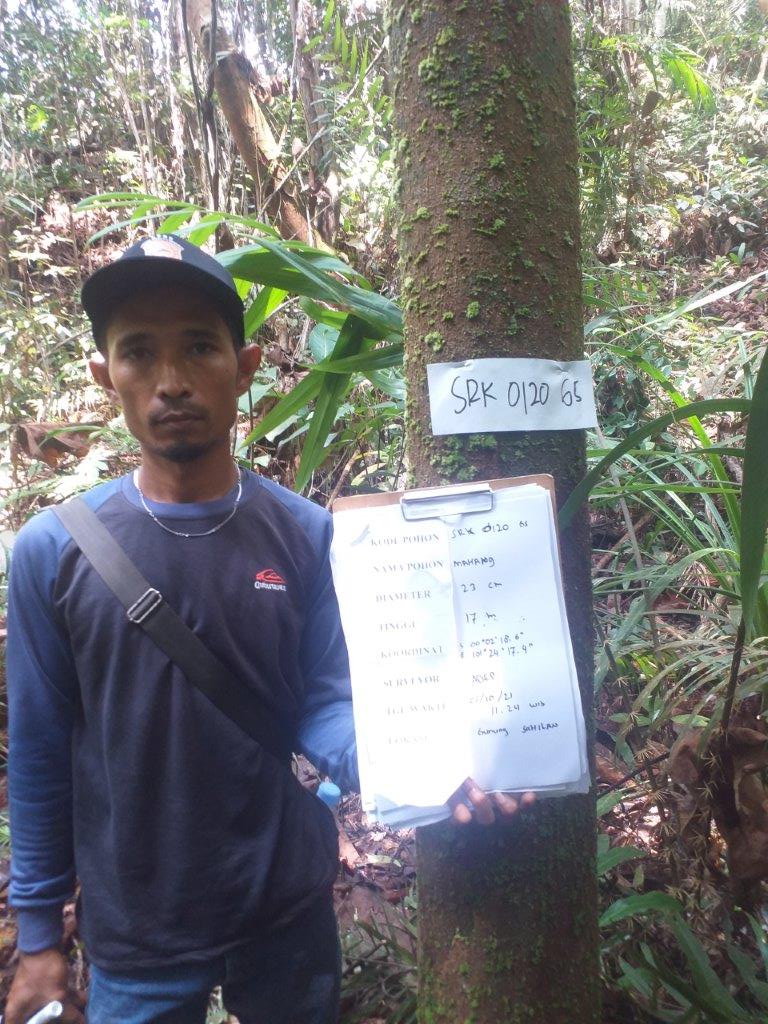 SRK 0120 65
KODE POHON SRK 0120 65
NAMA POHON MAHANG
DIAMETER 23 cm
TINGGI 17 m
KOORDINAT S 00°02'18.6"
E 101°24'17.4"
SURVEYOR
TGL/WAKTU 21/10/21
11.24 WIB
LOKASI Gunung SAHILAN
QUIKSILVER